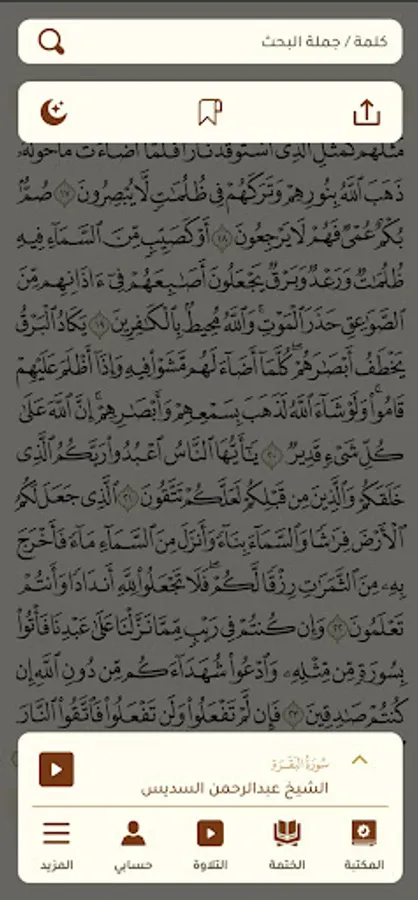 كلمة / جملة البحث
مَثَلُهُمْ كَمَثَلِ الَّذِي اسْتَوْقَدَ نَارًا فَلَمَّا أَضَاءَتْ مَا حَوْلَهُ
ذَهَبَ اللَّهُ بِنُورِهِمْ وَتَرَكَهُمْ فِي ظُلُمَاتٍ لَّا يُبْصِرُونَ ١٧ صُمٌّ
بُكْمٌ عُمْيٌ فَهُمْ لَا يَرْجِعُونَ ١٨ أَوْ كَصَيِّبٍ مِّنَ السَّمَاءِ فِيهِ
ظُلُمَاتٌ وَرَعْدٌ وَبَرْقٌ يَجْعَلُونَ أَصَابِعَهُمْ فِي آذَانِهِم مِّنَ
الصَّوَاعِقِ حَذَرَ الْمَوْتِ ۚ وَاللَّهُ مُحِيطٌ بِالْكَافِرِينَ ١٩ يَكَادُ الْبَرْقُ
يَخْطَفُ أَبْصَارَهُمْ ۖ كُلَّمَا أَضَاءَ لَهُم مَّشَوْا فِيهِ وَإِذَا أَظْلَمَ عَلَيْهِمْ
قَامُوا ۚ وَلَوْ شَاءَ اللَّهُ لَذَهَبَ بِسَمْعِهِمْ وَأَبْصَارِهِمْ ۚ إِنَّ اللَّهَ عَلَىٰ
كُلِّ شَيْءٍ قَدِيرٌ ٢٠ يَا أَيُّهَا النَّاسُ اعْبُدُوا رَبَّكُمُ الَّذِي
خَلَقَكُمْ وَالَّذِينَ مِن قَبْلِكُمْ لَعَلَّكُمْ تَتَّقُونَ ٢١ الَّذِي جَعَلَ لَكُمُ
الْأَرْضَ فِرَاشًا وَالسَّمَاءَ بِنَاءً وَأَنزَلَ مِنَ السَّمَاءِ مَاءً فَأَخْرَجَ
بِهِ مِنَ الثَّمَرَاتِ رِزْقًا لَّكُمْ ۖ فَلَا تَجْعَلُوا لِلَّهِ أَندَادًا وَأَنتُمْ
تَعْلَمُونَ ٢٢ وَإِن كُنتُمْ فِي رَيْبٍ مِّمَّا نَزَّلْنَا عَلَىٰ عَبْدِنَا فَأْتُوا
بِسُورَةٍ مِّن مِّثْلِهِ وَادْعُوا شُهَدَاءَكُم مِّن دُونِ اللَّهِ إِن
كُنتُمْ صَادِقِينَ ٢٣ فَإِن لَّمْ تَفْعَلُوا وَلَن تَفْعَلُوا فَاتَّقُوا النَّارَ
سُورَةُ البَقَرَةِ
الشيخ عبدالرحمن السديس
المكتبة الختمة التلاوة حسابي المزيد